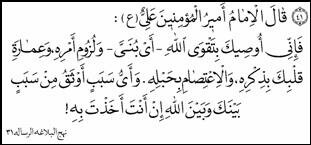 ٤٦ قَالَ الْإِمَامُ أَمِيرُ الْمُؤْمِنِينَ عَلِيٌّ (ع) :
فَإِنِّي أُوصِيكَ بِتَقْوَى اللهِ - أَيْ بُنَيَّ - وَلُزُومِ أَمْرِهِ، وَعِمَارَةِ
قَلْبِكَ بِذِكْرِهِ، وَالْاِعْتِصَامِ بِحَبْلِهِ. وَأَيُّ سَبَبٍ أَوْثَقُ مِنْ سَبَبٍ
بَيْنَكَ وَبَيْنَ اللهِ إِنْ أَنْتَ أَخَذْتَ بِهِ!
نهج البلاغه الرساله ٣١